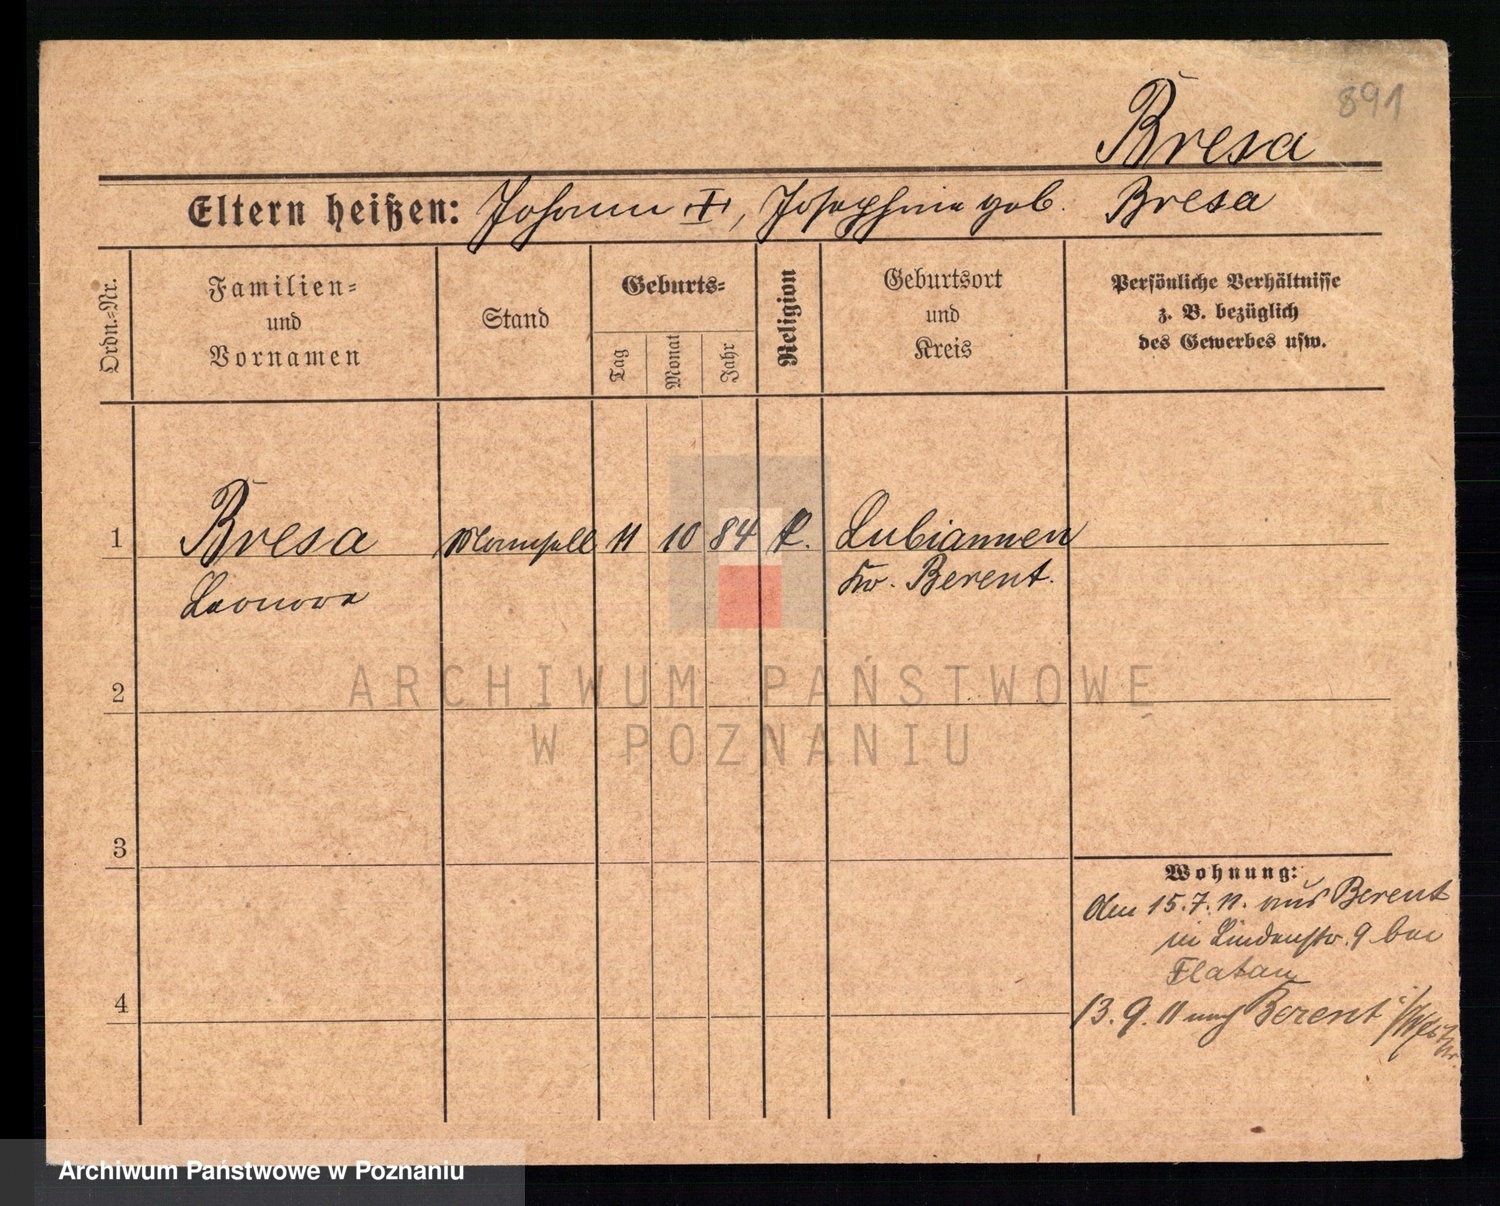 891
Bresa
Eltern heißen: Johann †, Josephine geb. Bresa
Ordn.-Nr.
Familien-
und
Vornamen
Stand
Geburts-
Tag
Monat
Jahr
Religion
Geburtsort
und
Kreis
Persönliche Verhältnisse
z. B. bezüglich
des Gewerbes usw.
1 Bresa Mamsell 11 10 84 k. Lubiannen
Leonore Kr. Berent.
2
3
4
Wohnung:
Am 15.7.11. aus Berent
in Lindenstr. 9 bei
Flatau
13.9.11 nach Berent
ARCHIWUM PAŃSTWOWE
W POZNANIU
Archiwum Państwowe w Poznaniu